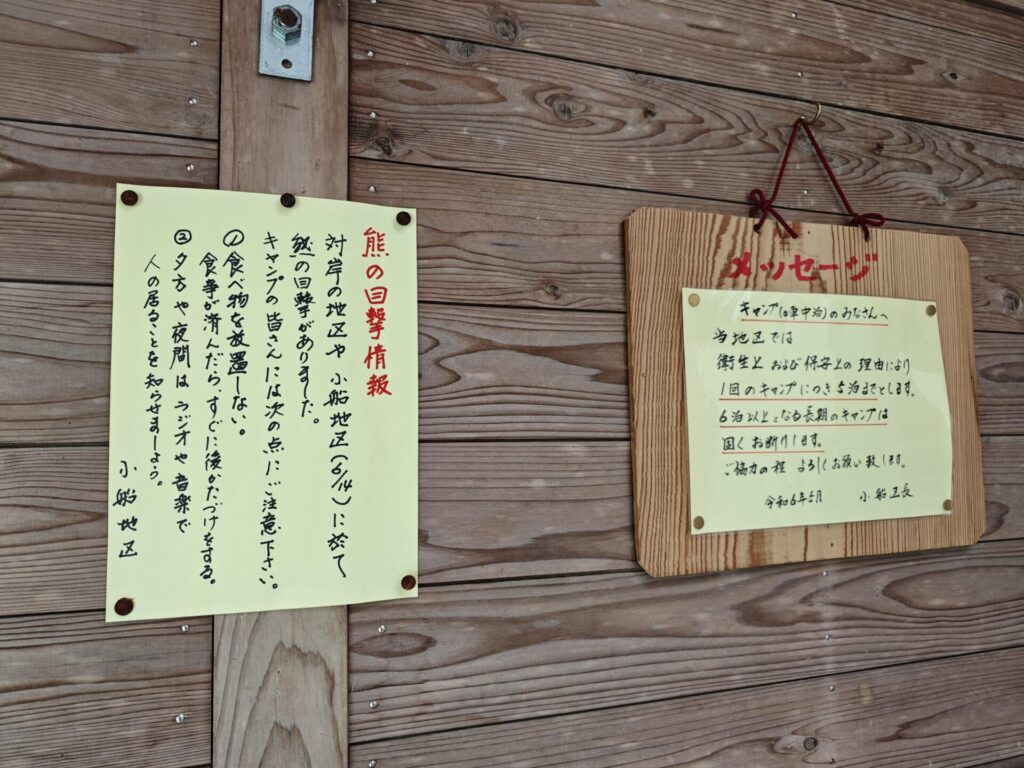 熊の目撃情報
対岸の地区や小船地区(6/14)に於て
熊の目撃がありました。
キャンプの皆さんには次の点にご注意下さい。
①食べ物を放置しない。
食事が済んだら、すぐに後かたづけをする。
②夕方や夜間はラジオや音楽で
人の居ることを知らせましょう。
小船地区
メッセージ
キャンプ(車中泊)のみなさんへ
当地区では
衛生上および保安上の理由により
1回のキャンプにつき5泊までとします。
6泊以上となる長期のキャンプは
固くお断りします。
ご協力の程 よろしくお願い致します。
令和6年5月 小船区長